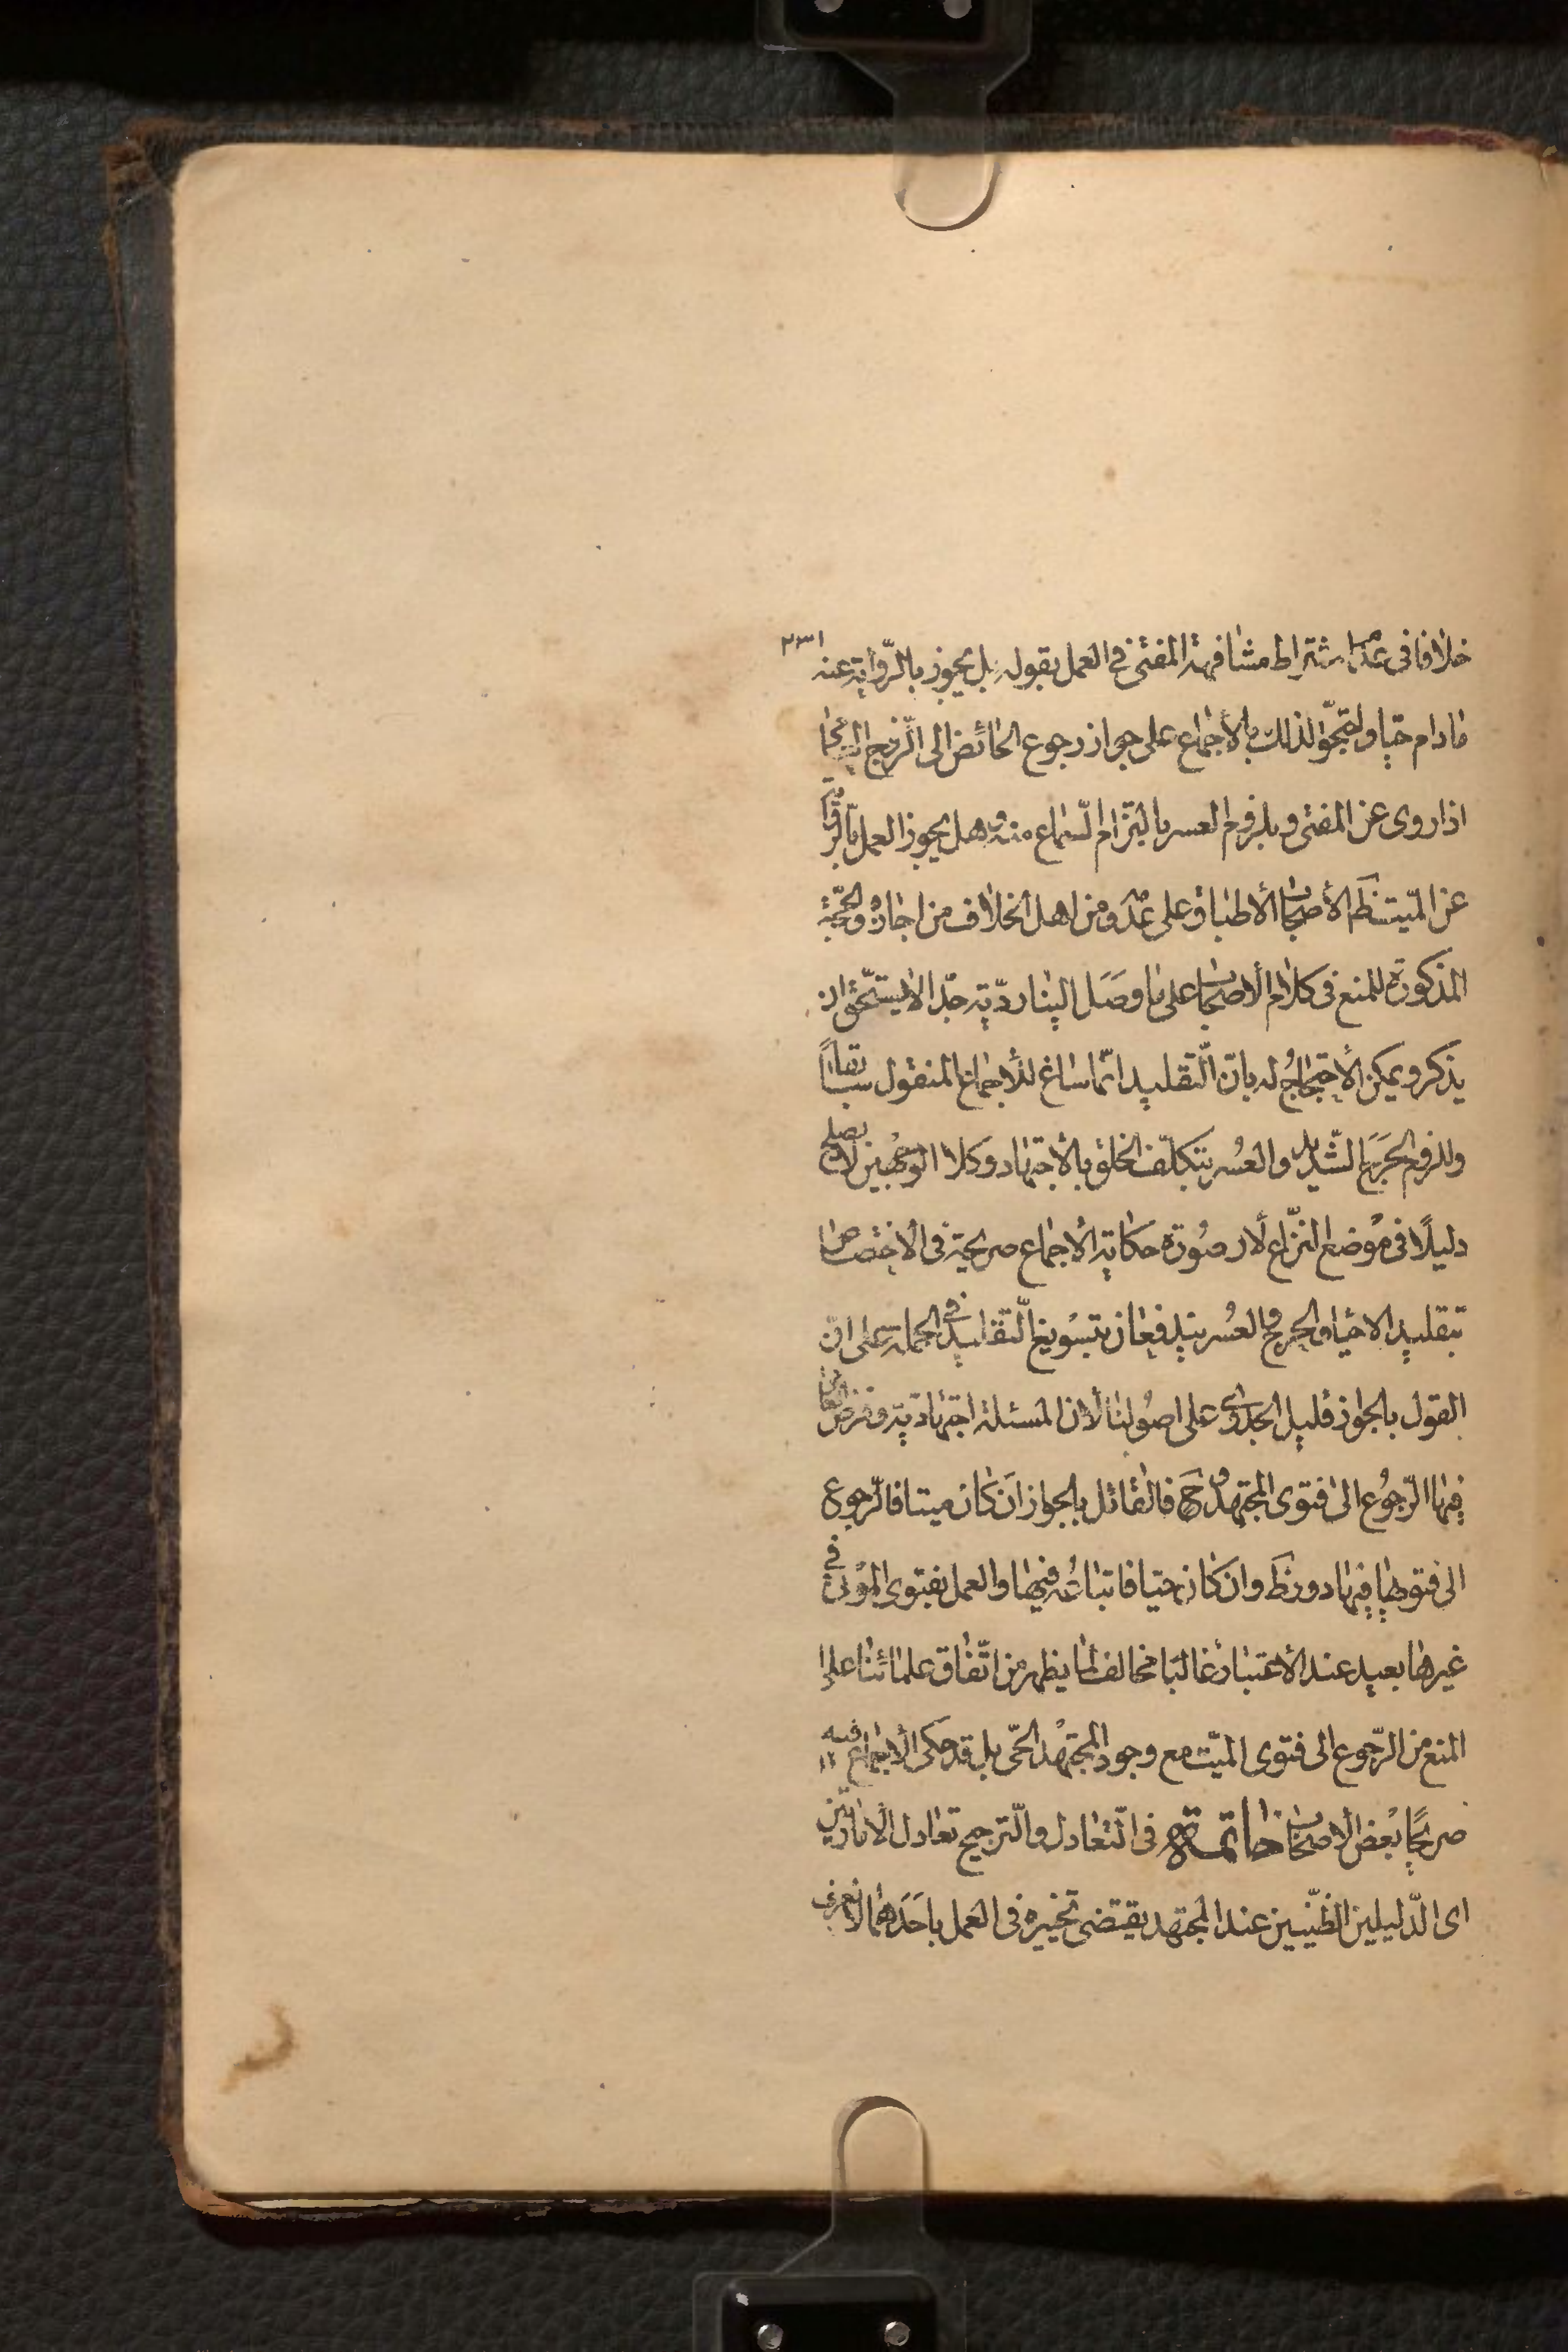 خلافا فى عدم اشتراط مشافهة المفتى فى العمل بقوله بل يجوز بالرّواية عنه ٢٣١
مادام حيّا واحتجّوا لذلك بالأجماع على جواز رجوع الحائض الى الزّوج العامى
اذا روى عن المفتى و بلزوم العسر بالتزام السّماع منه وهل يجوز العمل بالرّواية
عن الميّت ظَ الأصحاب الأطباق على عدمه ومن اهل الخلاف من اجازه والحجّة
المذكورة للمنع فى كلام الأصحاب على ما وصَل الينا رديّة جدّا لا يستحقّ ان
يذكر ويمكن الأحتجاج له بانّ التّقليد انّما ساغ للأجماع المنقول سابقاً
وللزوم الحَرَج الشّديد والعُسر بتكليف الخلق بالأجتهاد وكلا الوجهين لا يصلح
دليلًا فى مُوضع النّزاع لأن صُورة حكاية الأجماع صريحة فى الأختصاص
بتقليد الاحياء والحرج والعُسر يندفعان بتسويغ التّقليد فى الجملة على انّ
القول بالجواز قليل الجدوى على اصُولنا لأن المسئلة اجتهاديّة وفرض العامى
فيها الرّجُوع الى فتوى المجتهد وحَ فالقائل بالجواز ان كان ميتا فالرّجوع
الى فتويها فيها دور ظَ وان كان حيّا فاتباعُه فيها والعمل بفتوى الموتى فى
غيرها بعيد عند الأعتبار غالبًا مخالف لما يظهر من اتّفاق علمائنا على
المنع من الرّجوع الى فتوى الميّت مع وجود المجتهد الحّى بل قد حكى الأجماع فيه
صريحًا بعض الأصحاب خاتمة فى التّعادل والتّرجيح تعادل الأمارتين
اى الدّليلين الظّنّيين عند المجتهد يقتضى تخييره فى العمل باحَدهما لا نعرف